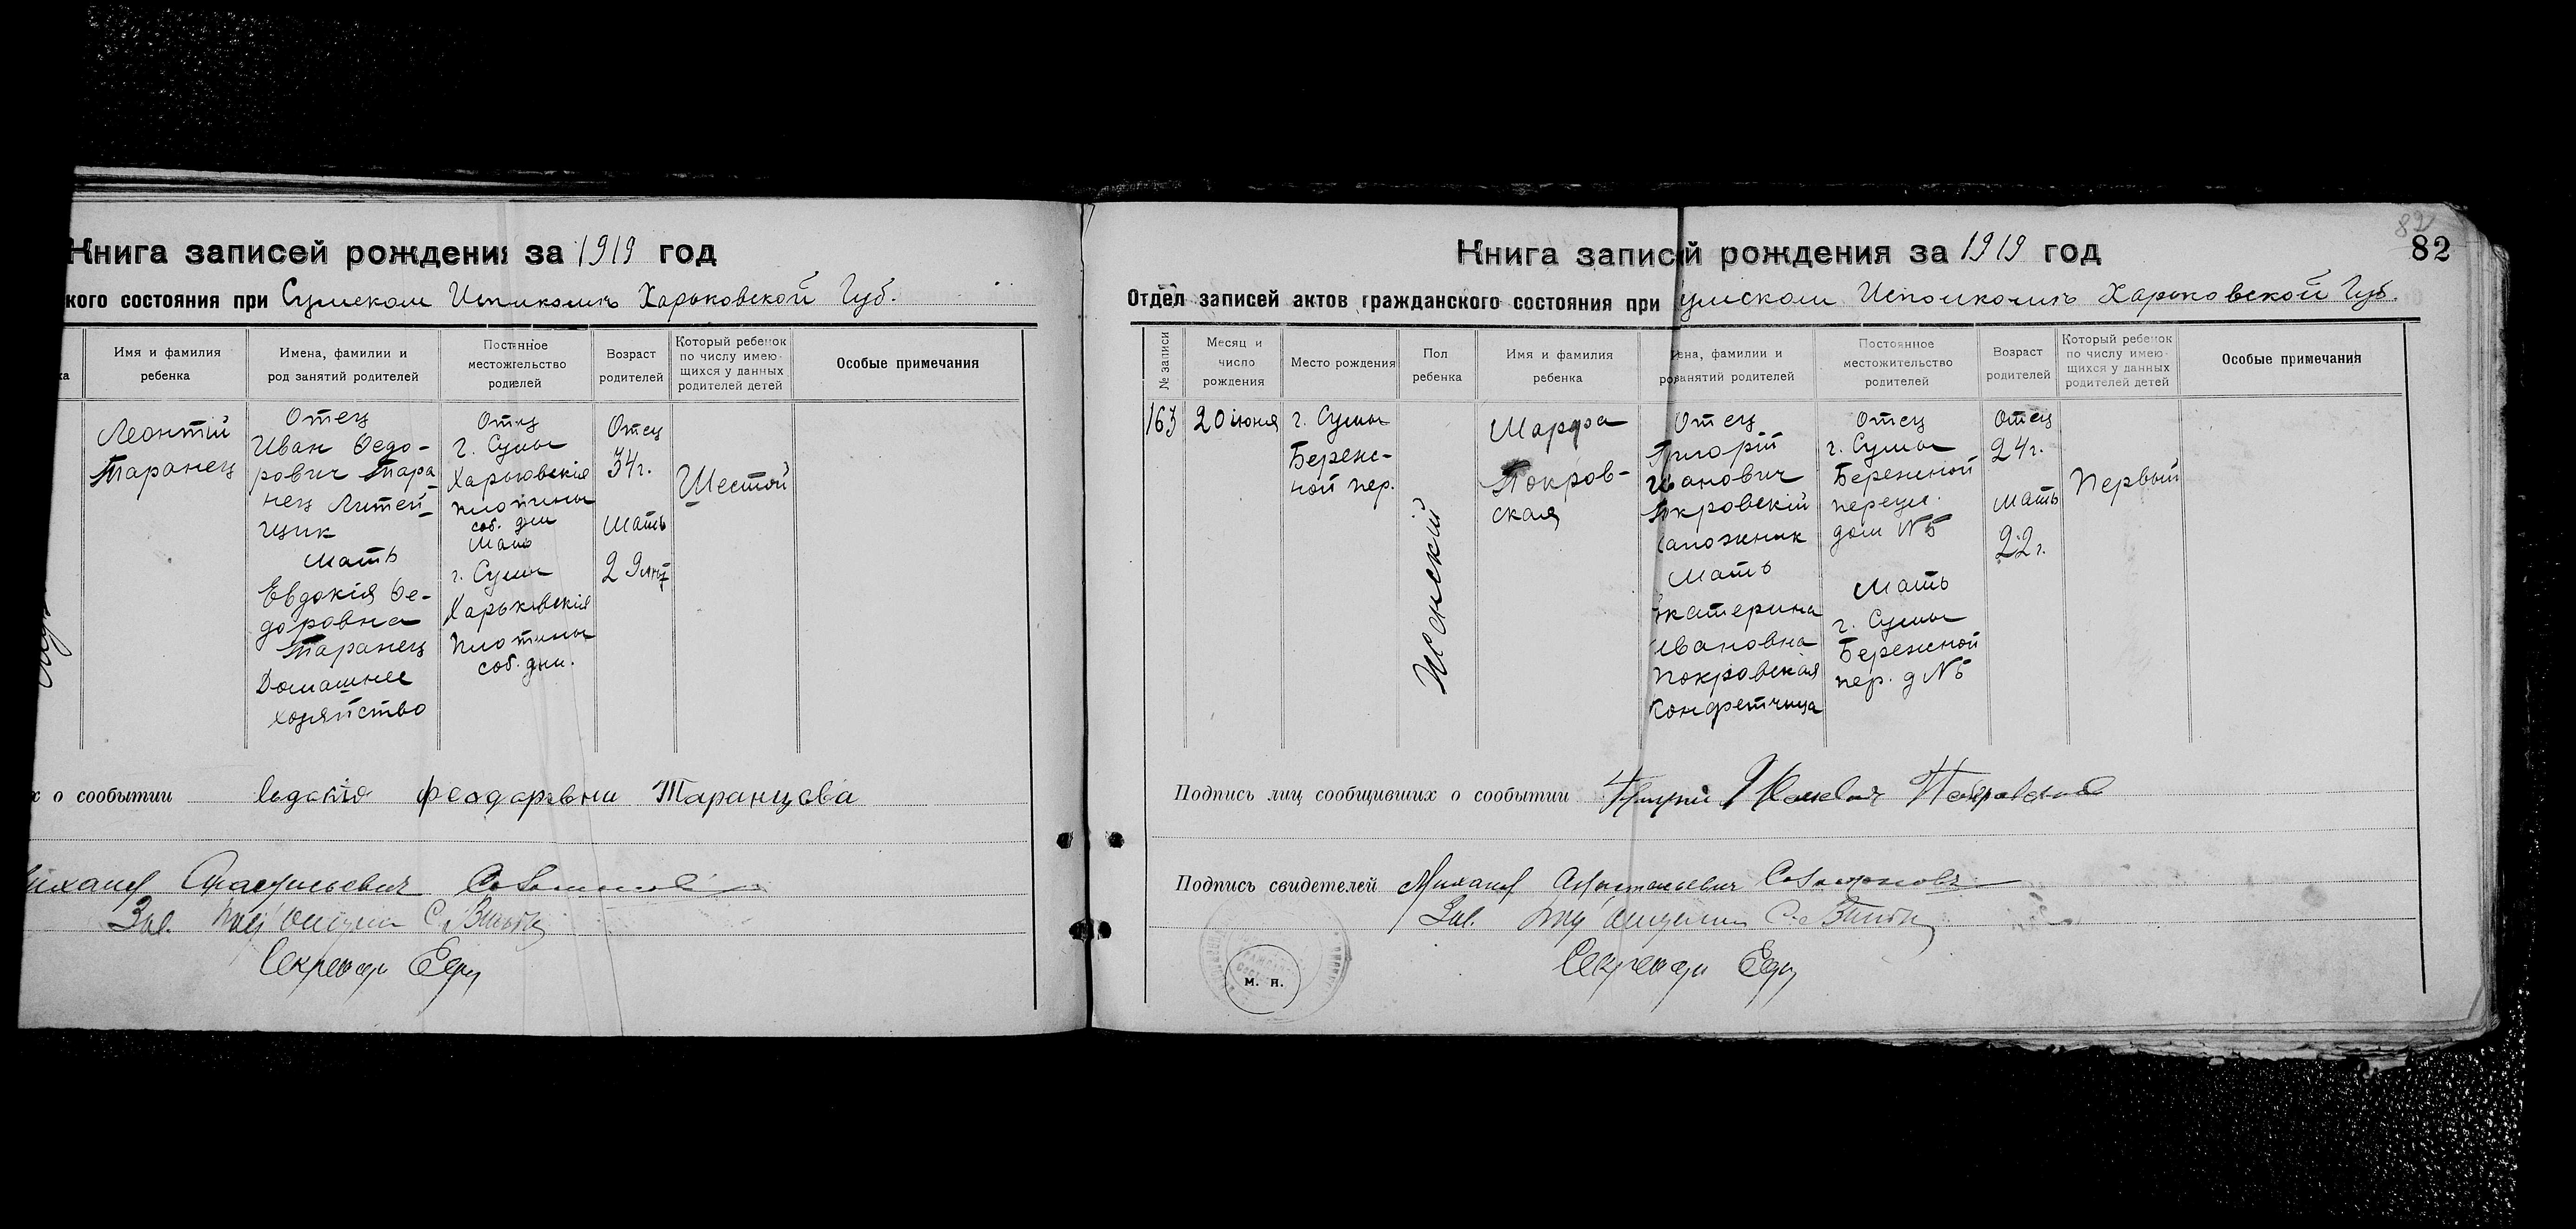 Книга записей рождения за 1919 год
кого состояния при Сумском Исполкомъ Харьковской Губ.
Имя и фамилия
ребенка
Имена, фамилии и
род занятий родителей
Постянное
местожительство
родителей
Возраст
родителей
Который ребенок
по числу имею-
щихся у данных
родителей детей
Особые примечания
Леонтій
Таранец
Отец
Иван Ѳедо-
рович Тара
нец Литей-
щик
Мать
Евдокія Ѳе-
доровна
Таранец
Домашнее
хозяйство
Отец
г. Сумы
Харьковскія
плотины
соб. дом
Мать
г. Сумы
Харьковскія
плотины
соб. дом.
Отец
34 г.
Мать
29 лет
Шестой
х о сообытии
Феодаровни Таранцова
Секретарь
82
82
Книга записей рождения за 1919 год
Отдел записей актов гражданского состояния при Сумском Исполкомъ Харьковской Губ.
№ записи
Месяц и
число
рождения
Место рождения
Пол
ребенка
Имя и фамилия
ребенка
ена, фамилии и
род занятий родителей
Постоянное
местожительство
родителей
Возраст
родителей
Который ребенок
по числу имею-
щихся у данных
родителей детей
Особые примечания
163
20 июня
г. Сумы
Бережс-
ной пер.
Женский
Марфа
Покров-
ская
Отец
Григорій
Иванович
Покровскій
сапожник
Мать
Екатерина
Ивановна
Покровская
Конфетчица
Отец
г. Сумы
Бережной
переул.
дом № 5
Мать
г. Сумы
Бережной
пер. д № 5
Отец
24 г.
Мать
22 г.
Первый
Подпись лиц сообщивших о сообытии Григорий Иванович Покровский
Подпись свидетелей Михаил
Секретарь
м. п.